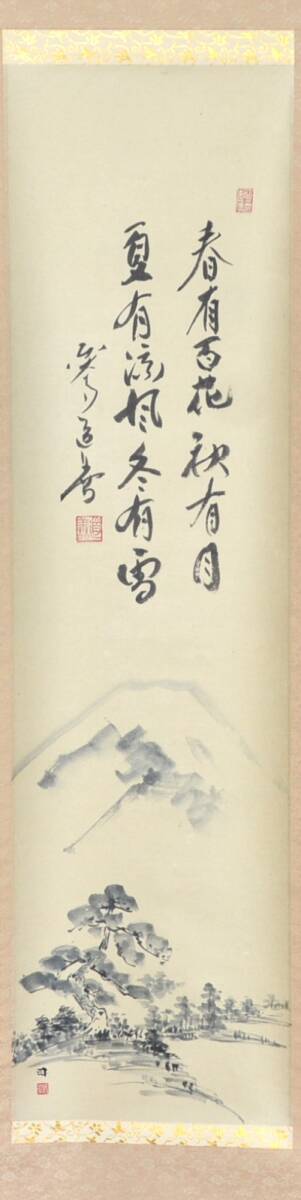 春有百花秋有月
夏有涼風冬有雪